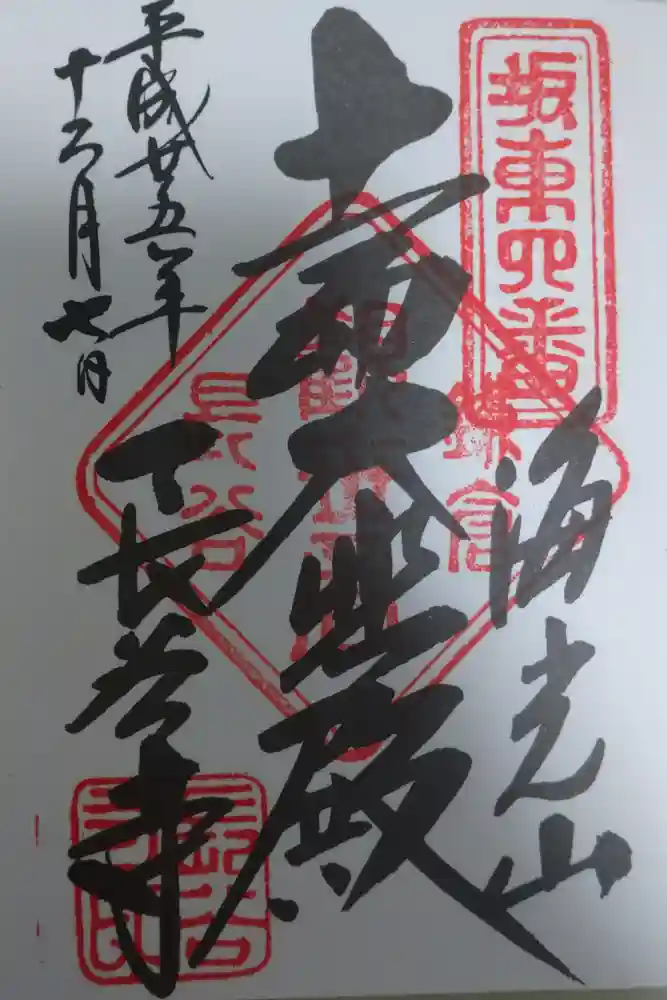 坂東四番
海光山
十一面大悲殿
鎌倉
長谷
長谷寺
平成廿五年
月七日